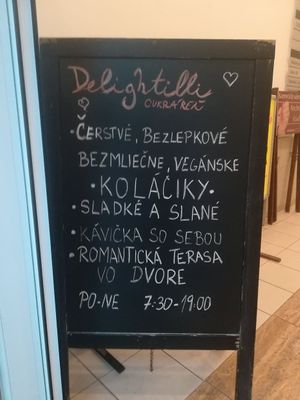 Delightilli
CUKRÁREŇ
• ČERSTVÉ, BEZLEPKOVÉ
BEZMLIEČNE, VEGÁNSKE
• KOLÁČIKY •
• SLADKÉ A SLANÉ
• KÁVIČKA SO SEBOU
• ROMANTICKÁ TERASA
VO DVORE
PO-NE 7:30-19:00